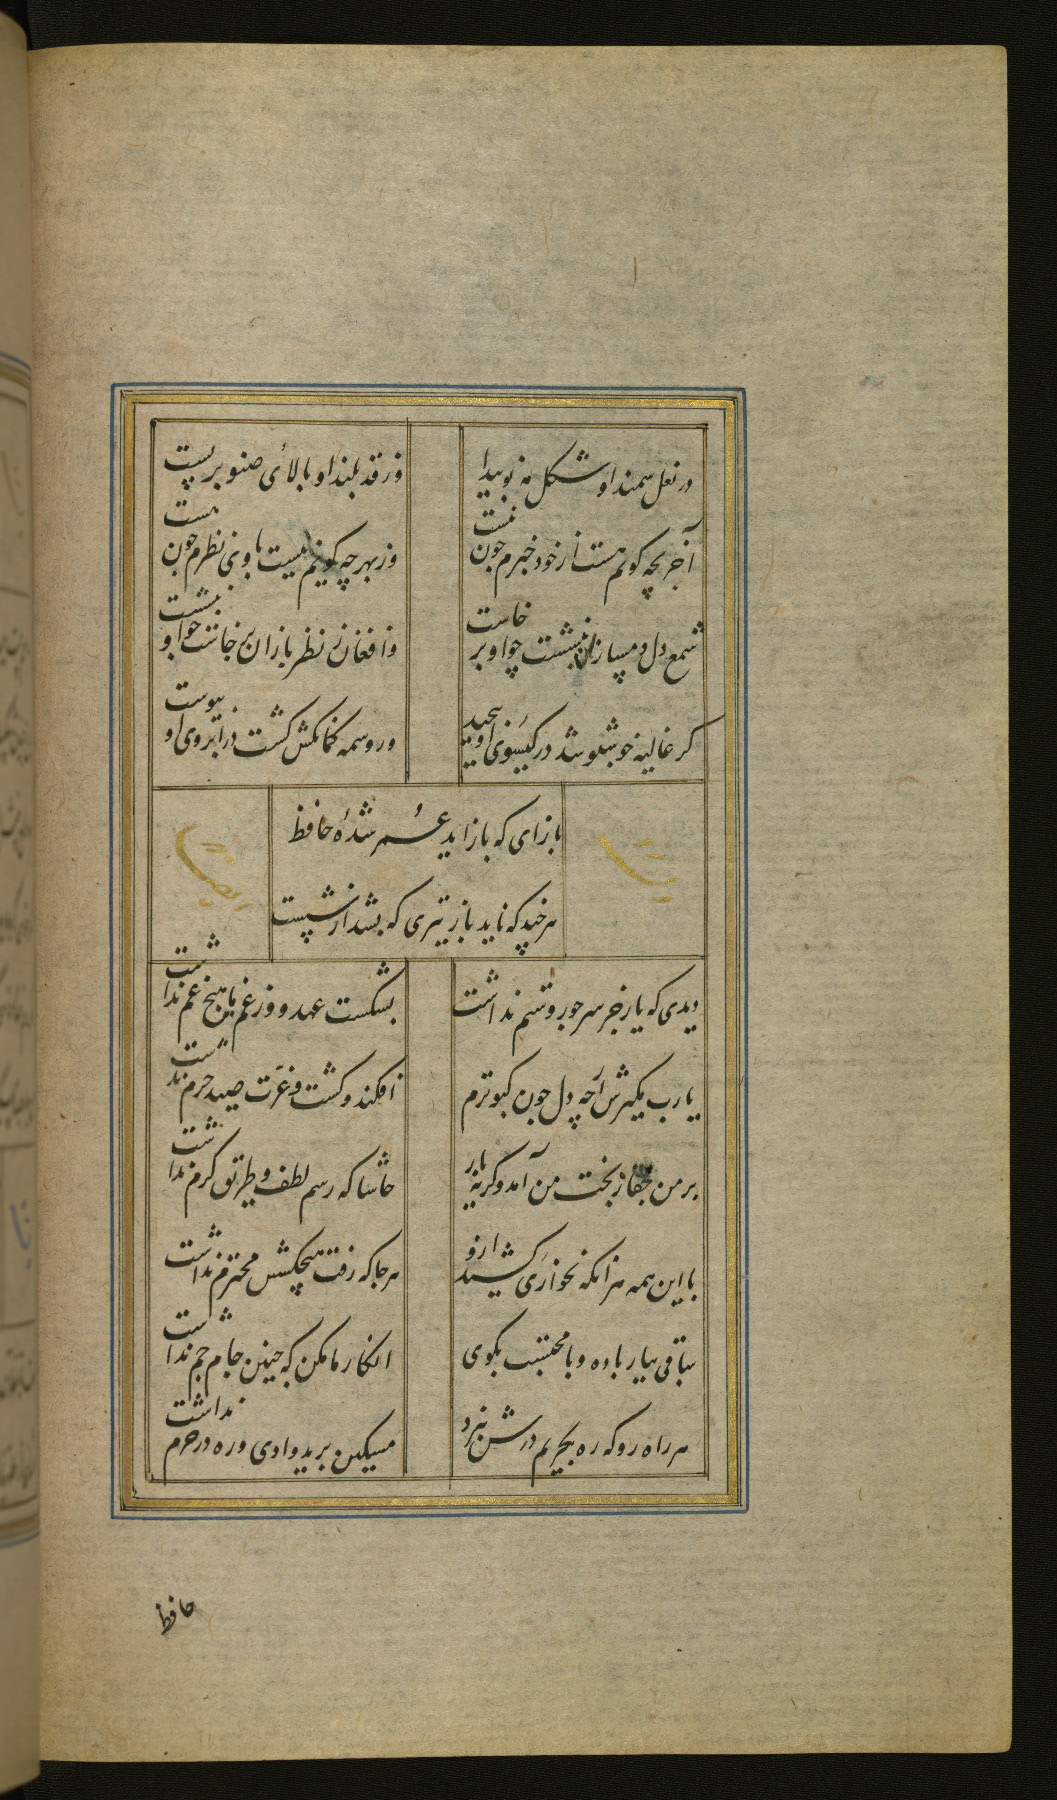 در نعل سمند او شکل مه نو پیدا
وز قد بلند او بالای صنوبر پست
آخر بچه گویم هست از خود خبرم چون نیست
وز بهر چه گویم نیست با وی نظرم چون هست
شمع دل دمسازان بنشست چو او برخاست
و افغان ز نظربازان برخاست چو او بنشست
گر غالیه خوشبو شد در گیسوی او پیچید
ور وسمه کمانکش گشت در ابروی او پیوست
بازای که باز اید عمر شده حافظ
هرچند که ناید باز تیری که بشد از شست
دیدی که یار جز سر جور و ستم نداشت
بشکست عهد و وز غم ما هیچ غم نداشت
یا رب مگیرش ار چه دل چون کبوترم
افکند و کشت و عزت صید حرم نداشت
بر من جفا ز بخت من آمد وگرنه یار
حاشا که رسم لطف و طریق کرم نداشت
با این همه هر آنکه نه خواری کشید ازو
هر جا که رفت هیچکسش محترم نداشت
ساقی بیار باده و با محتسب بگوی
انکار ما مکن که چنین جام جم نداشت
هر راه رو که ره بحریم درش نبرد
مسکین برید وادی و ره در حرم نداشت
حافظ